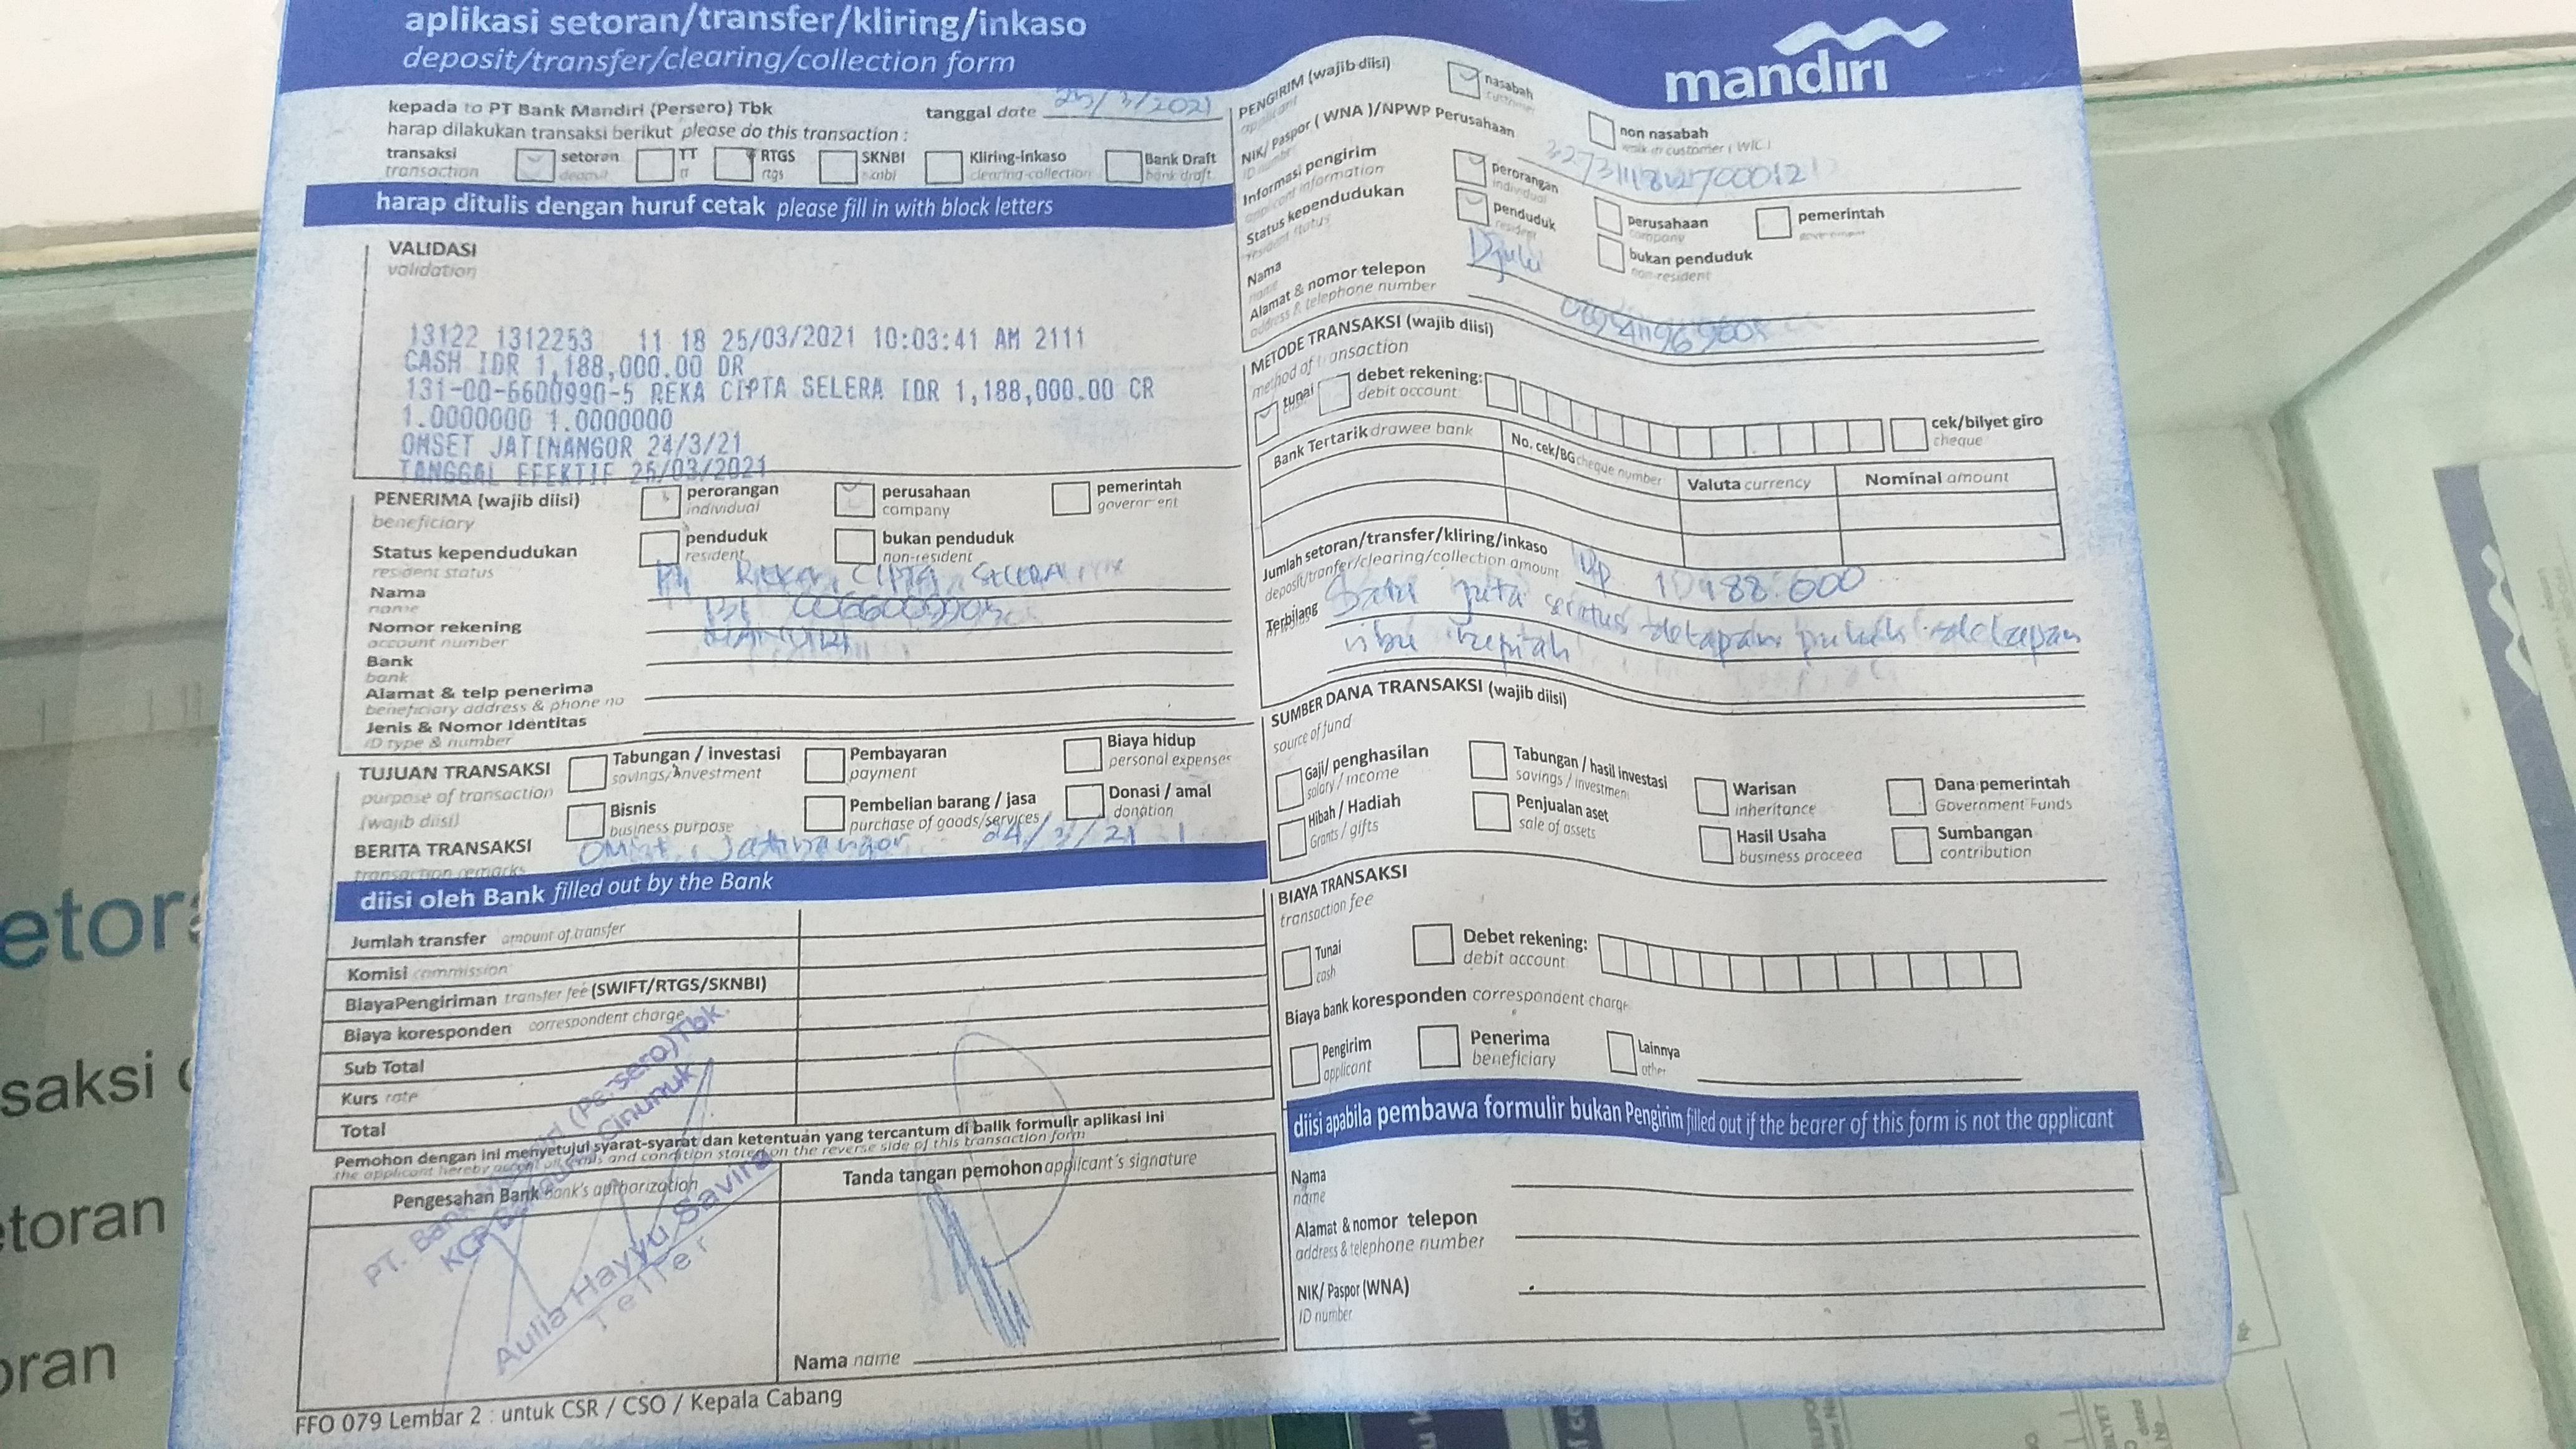 etora
saksi
toran
oran
aplikasi setoran/transfer/kliring/inkaso
deposit/transfer/clearing/collection form
mandiri
kepada to PT Bank Mandiri (Persero) Tbk
tanggal date 25/3/2021
harap dilakukan transaksi berikut please do this transaction :
transaksi
transaction
setoran
deposit
TT
tt
RTGS
rtgs
SKNBI
sknbi
Kliring-Inkaso
clearing-collection
Bank Draft
bank draft
harap ditulis dengan huruf cetak please fill in with block letters
VALIDASI
validation
13122 1312253 11 18 25/03/2021 10:03:41 AM 2111
CASH IDR 1,188,000.00 DR
131-00-6600990-5 REKA CIPTA SELERA IDR 1,188,000.00 CR
1.0000000 1.0000000
OMSET JATINANGOR 24/3/21
TANGGAL EFEKTIF 25/03/2021
PENERIMA (wajib diisi)
beneficiary
perorangan
individual
perusahaan
company
pemerintah
government
Status kependudukan
resident status
penduduk
resident
bukan penduduk
non-resident
Nama
name
Nomor rekening
account number
Bank
bank
Alamat & telp penerima
beneficiary address & phone no
Jenis & Nomor Identitas
ID type & number
TUJUAN TRANSAKSI
purpose of transaction
(wajib diisi)
Tabungan / investasi
savings/investment
Pembayaran
payment
Biaya hidup
personal expenses
Bisnis
business purpose
Pembelian barang / jasa
purchase of goods/services
Donasi / amal
donation
BERITA TRANSAKSI
transaction remarks
Omset Jatinangor 24/3/21
diisi oleh Bank filled out by the Bank
Jumlah transfer amount of transfer
Komisi commission
BiayaPengiriman transfer fee (SWIFT/RTGS/SKNBI)
Biaya koresponden correspondent charge
Sub Total
Kurs rate
Total
Pemohon dengan ini menyetujui syarat-syarat dan ketentuan yang tercantum di balik formulir aplikasi ini
Pengesahan Bank bank's authorization
Tanda tangan pemohon applicant's signature
Aulia Hayyu
Teller
Nama name
FFO 079 Lembar 2 : untuk CSR / CSO / Kepala Cabang
PENGIRIM (wajib diisi)
nasabah
customer
non nasabah
walk in customer ( WIC )
NIK/ Paspor ( WNA )/NPWP Perusahaan
Informasi pengirim
perorangan
individual
perusahaan
company
pemerintah
government
Status kependudukan
penduduk
resident
bukan penduduk
non-resident
Nama
name
Alamat & nomor telepon
address & telephone number
METODE TRANSAKSI (wajib diisi)
method of transaction
tunai
debet rekening:
debit account:
cek/bilyet giro
cheque
Bank Tertarik drawee bank
No. cek/BG cheque number
Valuta currency
Nominal amount
Jumlah setoran/transfer/kliring/inkaso
deposit/transfer/clearing/collection amount
Rp. 1.188.000
Terbilang
Satu juta seratus delapan puluh delapan
ribu rupiah
SUMBER DANA TRANSAKSI (wajib diisi)
source of fund
Gaji/ penghasilan
salary / income
Tabungan / hasil investasi
savings / investmen
Warisan
inheritance
Dana pemerintah
Government Funds
Hibah / Hadiah
Grants / gifts
Penjualan aset
sale of assets
Hasil Usaha
business proceed
Sumbangan
contribution
BIAYA TRANSAKSI
transaction fee
Tunai
cash
Debet rekening:
debit account
Biaya bank koresponden correspondent charge
Pengirim
applicant
Penerima
beneficiary
Lainnya
other
diisi apabila pembawa formulir bukan Pengirim filled out if the bearer of this form is not the applicant
Nama
name
Alamat & nomor telepon
address & telephone number
NIK/ Paspor (WNA)
ID number